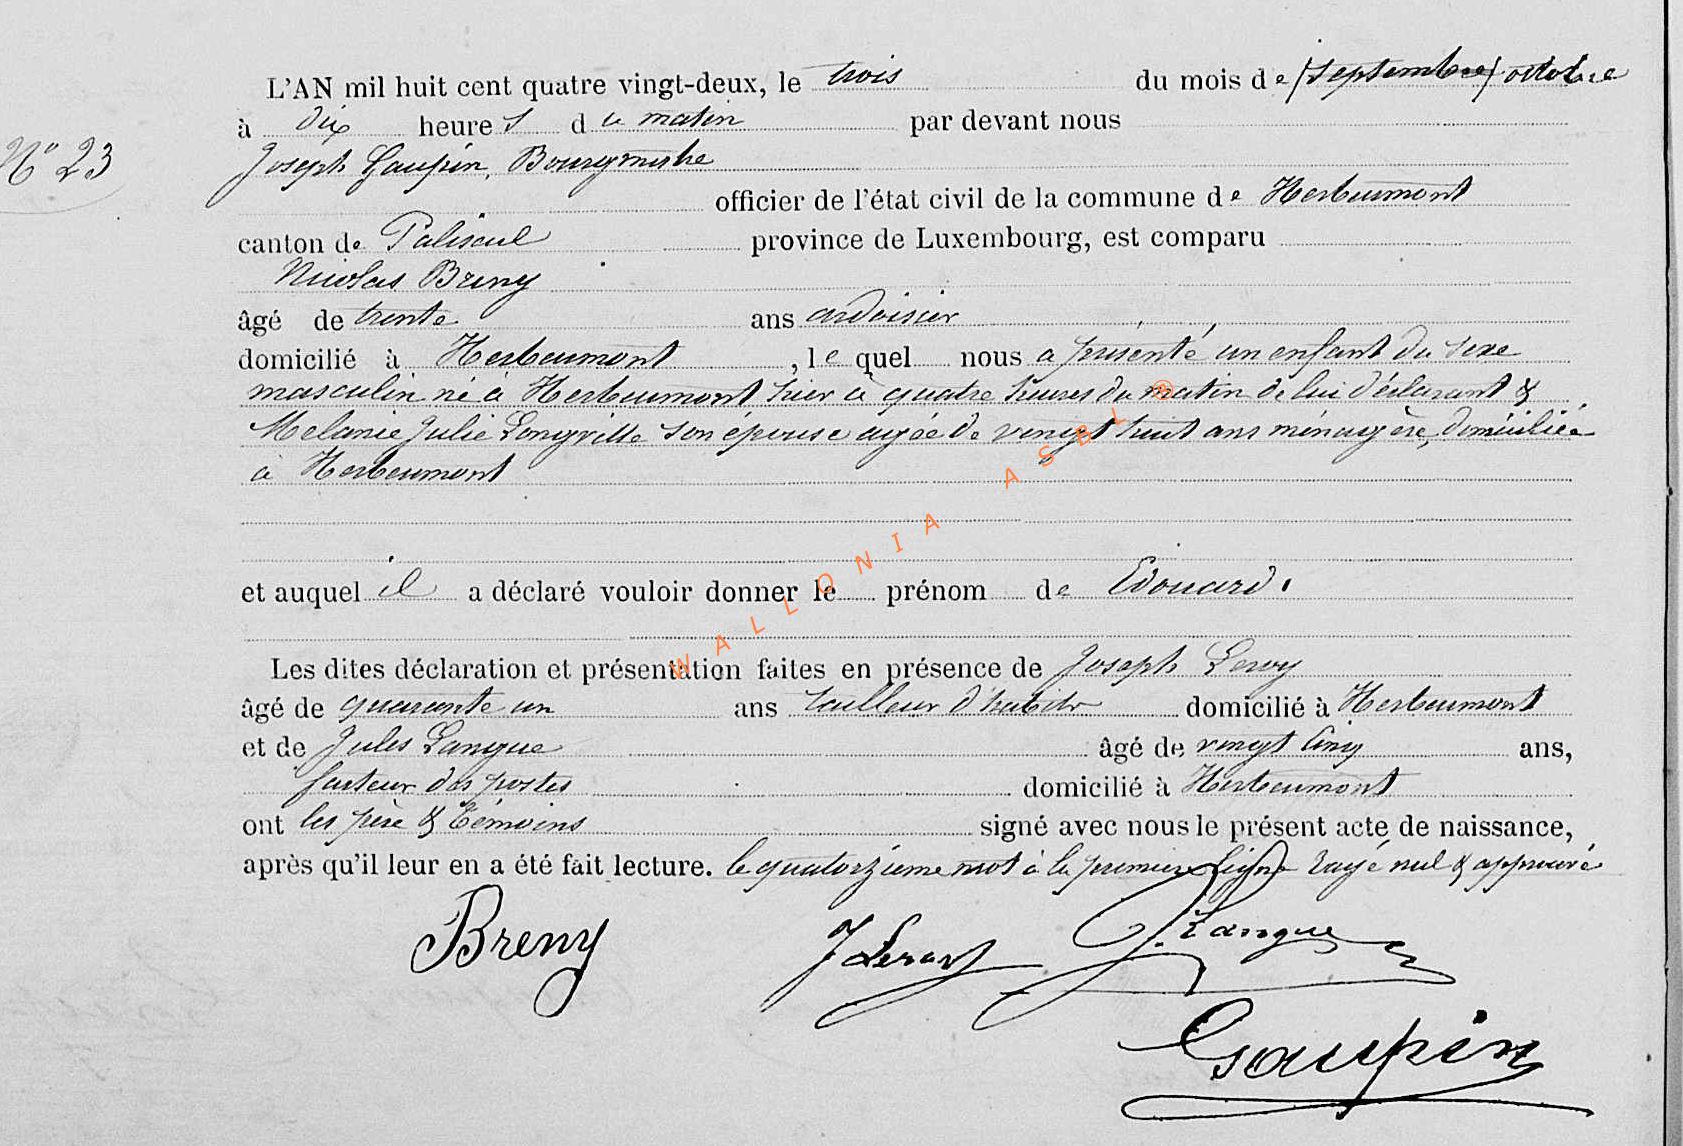 L'AN mil huit cent quatre vingt-deux, le trois du mois de /septembre/ octobre
à dix heures du matin par devant nous
N° 23
Joseph Gaupin, Bourgmestre
officier de l'état civil de la commune de Herbeumont
canton de Paliseul province de Luxembourg, est comparu
Nicolas Breny
âgé de trente ans ardoisier
domicilié à Herbeumont, le quel nous a présenté un enfant du sexe
masculin né à Herbeumont hier à quatre heures du matin de lui déclarant &
Mélanie Julie Longville son épouse agée de vingt huit ans ménagère, domiciliée
à Herbeumont
et auquel il a déclaré vouloir donner le prénom de Edouard.
Les dites déclaration et présentation faites en présence de Joseph
âgé de quarante un ans tailleur d'habits domicilié à Herbeumont
et de Jules Langue âgé de vingt cinq ans,
facteur des postes domicilié à Herbeumont
ont les père & témoins signé avec nous le présent acte de naissance,
après qu'il leur en a été fait lecture. le quatorzième mot à la première ligne rayé nul & approuvé
Breny J. Langue
Gaupin
WALLONIA ASBL ®